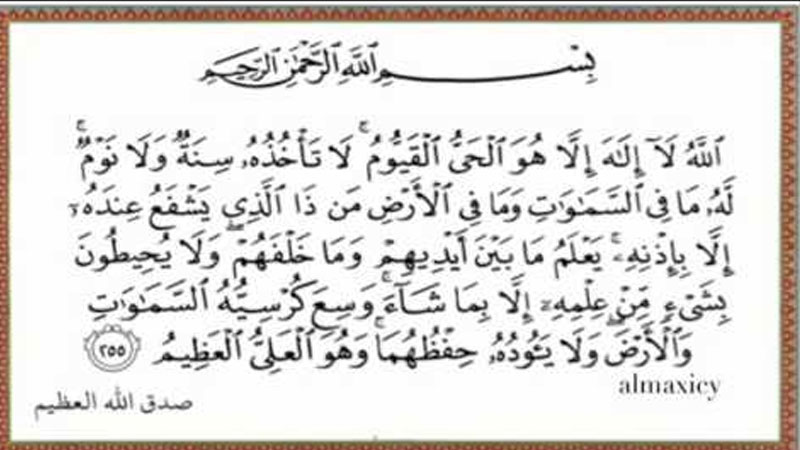 بِسْمِ ٱللَّهِ ٱلرَّحْمَٰنِ ٱلرَّحِيمِ
ٱللَّهُ لَآ إِلَٰهَ إِلَّا هُوَ ٱلْحَىُّ ٱلْقَيُّومُ ۚ لَا تَأْخُذُهُۥ سِنَةٌ وَلَا نَوْمٌ ۚ
لَّهُۥ مَا فِى ٱلسَّمَٰوَٰتِ وَمَا فِى ٱلْأَرْضِ مَن ذَا ٱلَّذِى يَشْفَعُ عِندَهُۥٓ
إِلَّا بِإِذْنِهِۦ ۚ يَعْلَمُ مَا بَيْنَ أَيْدِيهِمْ وَمَا خَلْفَهُمْ ۖ وَلَا يُحِيطُونَ
بِشَىْءٍ مِّنْ عِلْمِهِۦٓ إِلَّا بِمَا شَآءَ ۚ وَسِعَ كُرْسِيُّهُ ٱلسَّمَٰوَٰتِ
وَٱلْأَرْضَ ۖ وَلَا يَـُٔودُهُۥ حِفْظُهُمَا ۚ وَهُوَ ٱلْعَلِىُّ ٱلْعَظِيمُ ٢٥٥
almaxicy
صدق الله العظيم